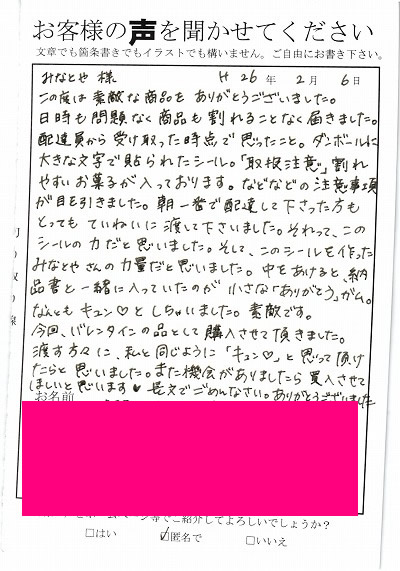 お客様の声を聞かせてください
文章でも箇条書きでもイラストでも構いません。ご自由にお書き下さい。
みなとや 様 H 26 年 2 月 6 日
この度は素敵な商品を ありがとうございました。
日時も問題なく商品も割れることなく届きました。
配達員から受け取った時点で思ったこと。ダンボールに
大きな文字で貼られたシール。「取扱注意」割れ
やすいお菓子が入っております。などなどの注意事項
が目を引きました。朝一番で配達して下さった方も
とってもていねいに渡して下さいました。それって、この
シールの力だと思いました。そして、このシールを作った
みなとやさんの力量だと思いました。中をあけると、納
品書と一緒に入っていたのが 小さな「ありがとう」ガム。
なんともキュン♡としちゃいました。素敵です。
今回、バレンタインの品として購入させて頂きました。
渡す方々に、私と同じように「キュン♡」と思って頂け
たらと思いました。また機会がありましたら買入させて
ほしいと思います♥ 長文でごめんなさい。ありがとうございました
お名前
等でご紹介してよろしいでしょうか?
□はい ☑匿名で □いいえ